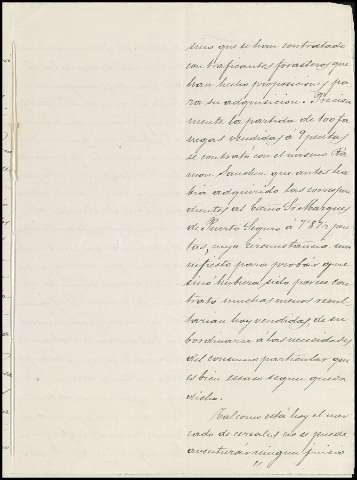 sino que se han contratado
con traficantes forasteros que
han hecho proposiciones pa
ra su adquisicion. Precisa
mente la partida de 100 fa
negas vendidas á 9 pesetas
se contrató con el mismo Ra
mon Sanchez que antes ha
bia adquirido las correspon
dientes al Excmo Sr Marques
de Puerto Seguro á 7'87 pe
setas, cuya circunstancia ma
nifiesto para probar que
si no hubiera sido por ese con
trato muchas menos resul
tarian hoy vendidas, de su
bordinarse á las necesidades
del consumo particular que
es bien escaso segun queda
dicho.
Tal como está hoy el mer
cado de cereales no se puede
aventurar ningun juicio